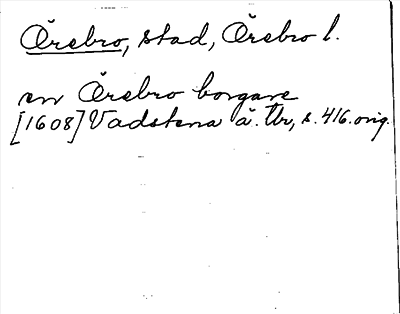 Örebro, stad, Örebro l.
en Örebro borgare
[1608] Vadstena ä. Tbr, s. 416. orig.